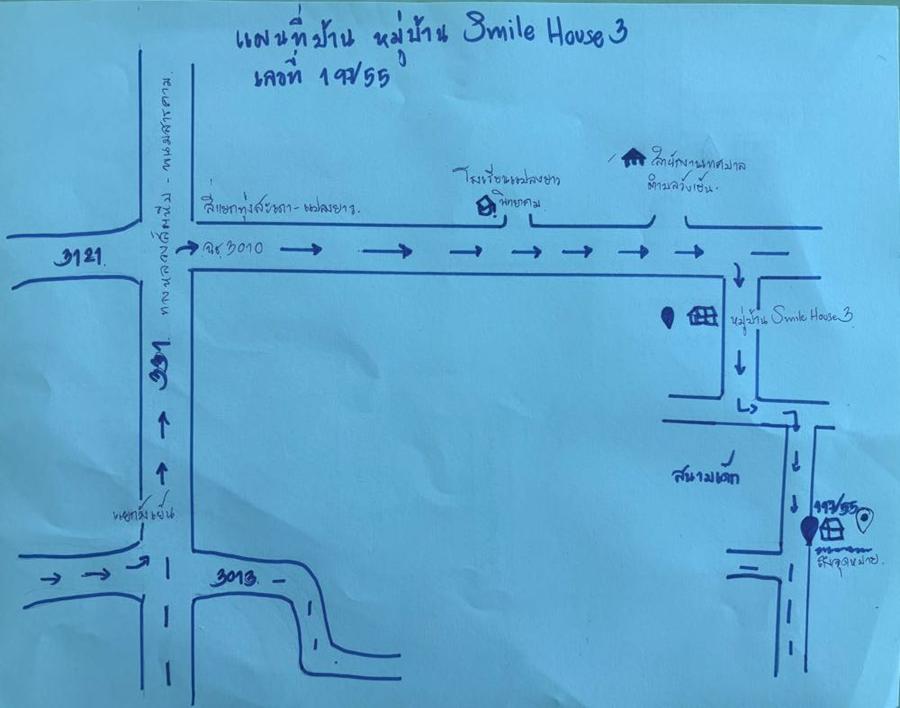 แผนที่บ้าน หมู่บ้าน Smile House 3
เลขที่ 197/55
ทางหลวงสัตหีบ - พนมสารคาม.
สี่แยกทุ่งสะเดา - แปลงยาว.
โรงเรียนแปลงยาว
พิทยาคม
สำนักงานเทศบาล
ตำบลวังเย็น.
3121
ฉช.3010
หมู่บ้าน Smile House 3
331
สนามเด็ก
แยกวังเย็น
197/55
ถึงจุดหมาย.
3013